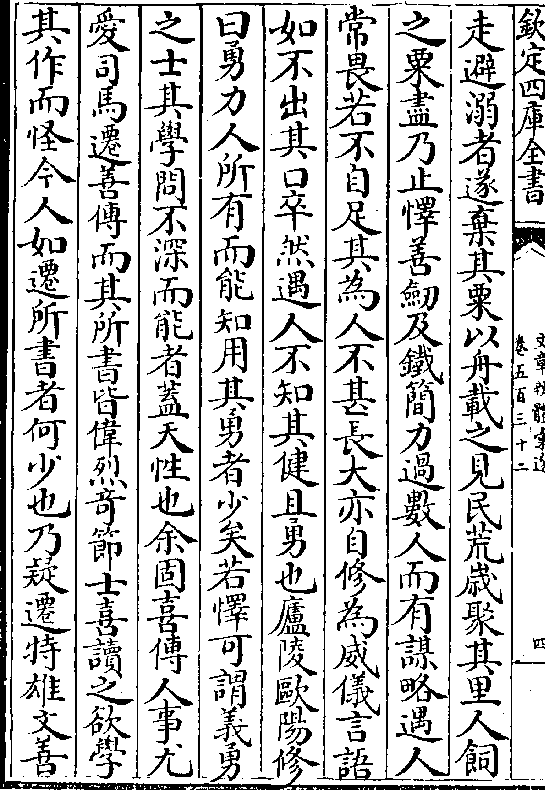 欽定四庫全書
文章辨體彙選
卷五百三十二
四
走避溺者遂棄其粟以舟載之見民荒歲聚其里人飼
之粟盡乃止懌善劒及鐵簡力過數人而有謀略遇人
常畏若不自足其為人不甚長大亦自修為威儀言語
如不出其口卒然遇人不知其健且勇也廬陵歐陽修
曰勇力人所有而能知用其勇者少矣若懌可謂義勇
之士其學問不深而能者蓋天性也余固喜傳人事尤
愛司馬遷善傳而其所書皆偉烈竒節士喜讀之欲學
其作而怪今人如遷所書者何少也乃疑遷特雄文善